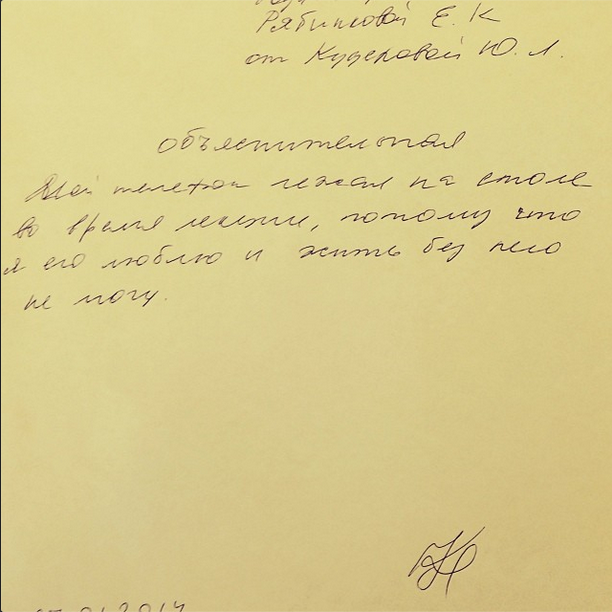 Рябинковой Е. К
от Кудековой Ю. Л.
объяснительная
Мой телефон лежал на столе
во время лекции, потому что
я его люблю и жить без него
не могу.